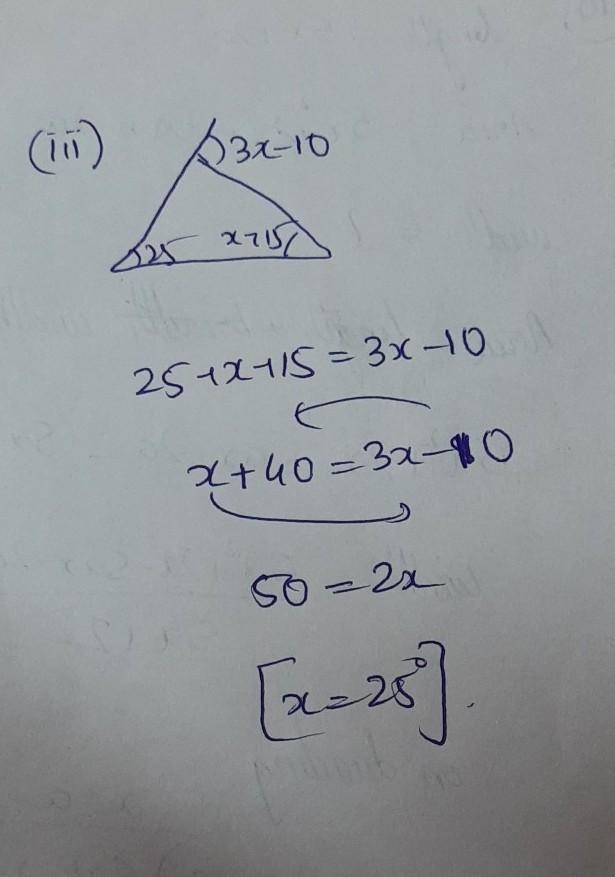 (iii)
3x-10
25 x+15
25+x+15=3x-10
x+40=3x-10
50=2x
[x=25°].